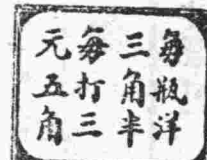 每瓶洋
三角半
每打三
元五角